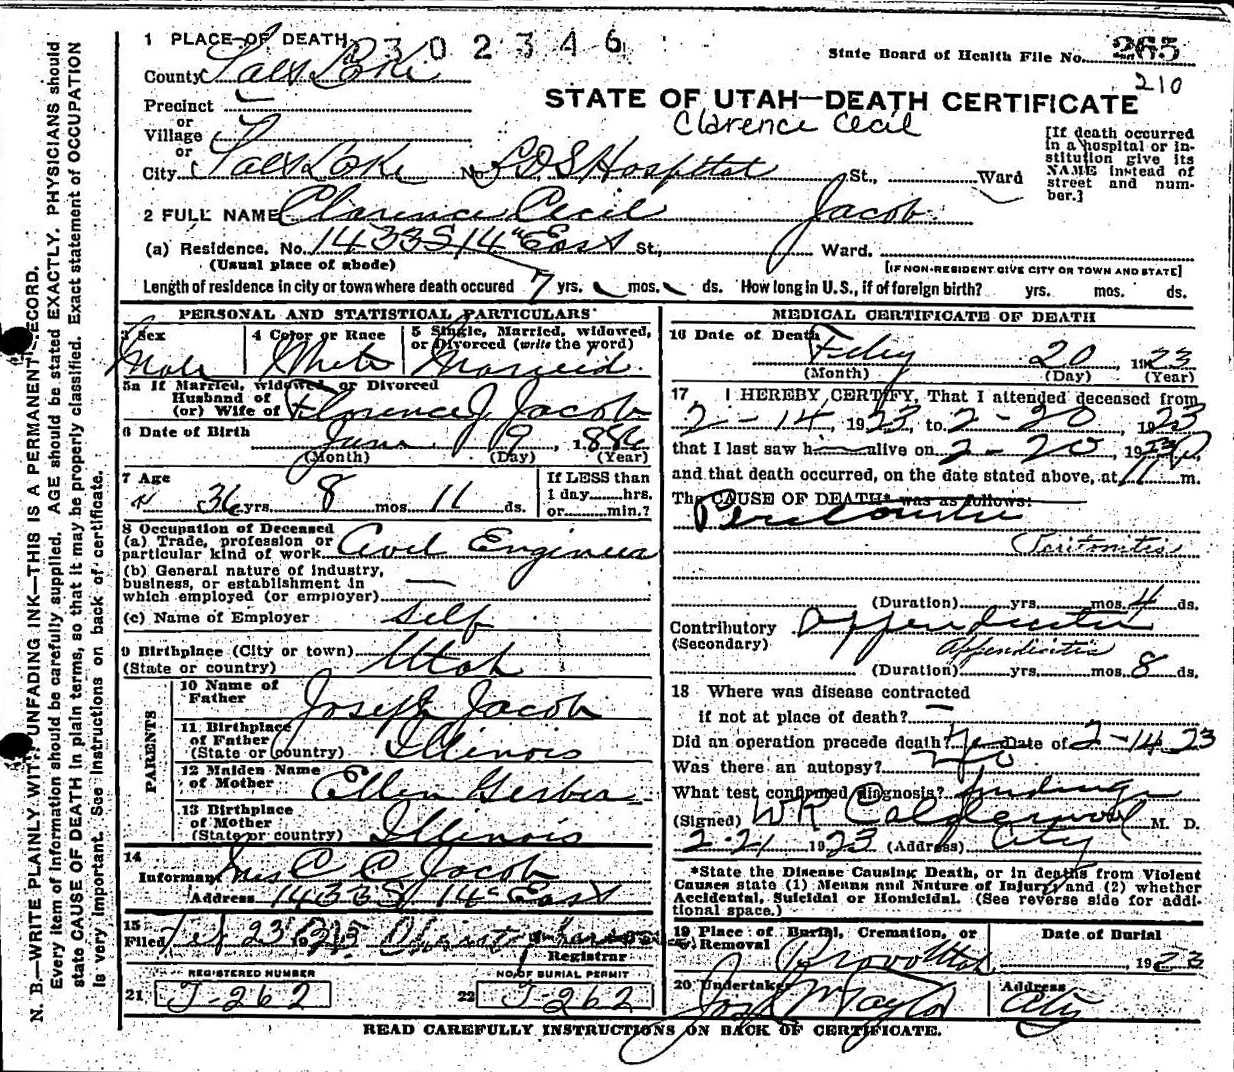 N. B.—WRITE PLAINLY WITH UNFADING INK—THIS IS A PERMANENT RECORD.
Every item of information should be carefully supplied. AGE should be stated EXACTLY. PHYSICIANS should
state CAUSE OF DEATH in plain terms, so that it may be properly classified. Exact statement of OCCUPATION
is very important. See instructions on back of certificate.
1 PLACE OF DEATH
302346
State Board of Health File No. 265
210
County Salt Lake
STATE OF UTAH—DEATH CERTIFICATE
Clarence Cecil
Precinct
or
Village
or
City Salt Lake No. LDS Hospital St., Ward
[If death occurred
in a hospital or in-
stitution give its
NAME instead of
street and num-
ber.]
2 FULL NAME Clarence Cecil Jacob
(a) Residence, No. 1433 S 14" East St., Ward.
(Usual place of abode)
[IF NON-RESIDENT GIVE CITY OR TOWN AND STATE]
Length of residence in city or town where death occured 7 yrs. mos. ds. How long in U.S., if of foreign birth? yrs. mos. ds.
PERSONAL AND STATISTICAL PARTICULARS
3 Sex
Male
4 Color or Race
White
5 Single, Married, widowed,
or Divorced (write the word)
Married
5a If Married, widowed, or Divorced
Husband of
(or) Wife of Florence J Jacob
6 Date of Birth
June 9, 1886
(Month) (Day) (Year)
7 Age
36 yrs. 8 mos. 11 ds.
If LESS than
1 day hrs.
or min.?
8 Occupation of Deceased
(a) Trade, profession or
particular kind of work Civil Engineer
(b) General nature of industry,
business, or establishment in
which employed (or employer)
(c) Name of Employer Self
9 Birthplace (City or town)
(State or country) Utah
PARENTS
10 Name of
Father Joseph Jacob
11 Birthplace
of Father
(State or country) Illinois
12 Maiden Name
of Mother Ellen Gerber
13 Birthplace
of Mother
(State or country) Illinois
14
Informant Mrs C C Jacob
Address 1433 S 14" East
15
Filed Feb 23 1923
Registrar
REGISTERED NUMBER
21 J-262
NO. OF BURIAL PERMIT
22 J-262
MEDICAL CERTIFICATE OF DEATH
16 Date of Death
Feby 20 1923
(Month) (Day) (Year)
17 I HEREBY CERTIFY, That I attended deceased from
2-14, 1923, to 2-20, 1923
that I last saw h alive on 2-20, 1923
and that death occurred, on the date stated above, at 11 P m.
The CAUSE OF DEATH* was as follows:
Peritonitis
Peritonitis
(Duration) yrs. mos. 4 ds.
Contributory Appendicitis
(Secondary) Appendicitis
(Duration) yrs. mos. 8 ds.
18 Where was disease contracted
if not at place of death?
Did an operation precede death? Yes Date of 2-14-23
Was there an autopsy? No
What test confirmed diagnosis? findings
(Signed) WR Calderwood M. D.
2-21 1923 (Address) City
*State the Disease Causing Death, or in deaths from Violent
Causes state (1) Means and Nature of Injury; and (2) whether
Accidental, Suicidal or Homicidal. (See reverse side for addi-
tional space.)
19 Place of Burial, Cremation, or
Removal Provo Utah
Date of Burial
, 1923
20 Undertaker
Jos Wm Taylor
Address
City
READ CAREFULLY INSTRUCTIONS ON BACK OF CERTIFICATE.